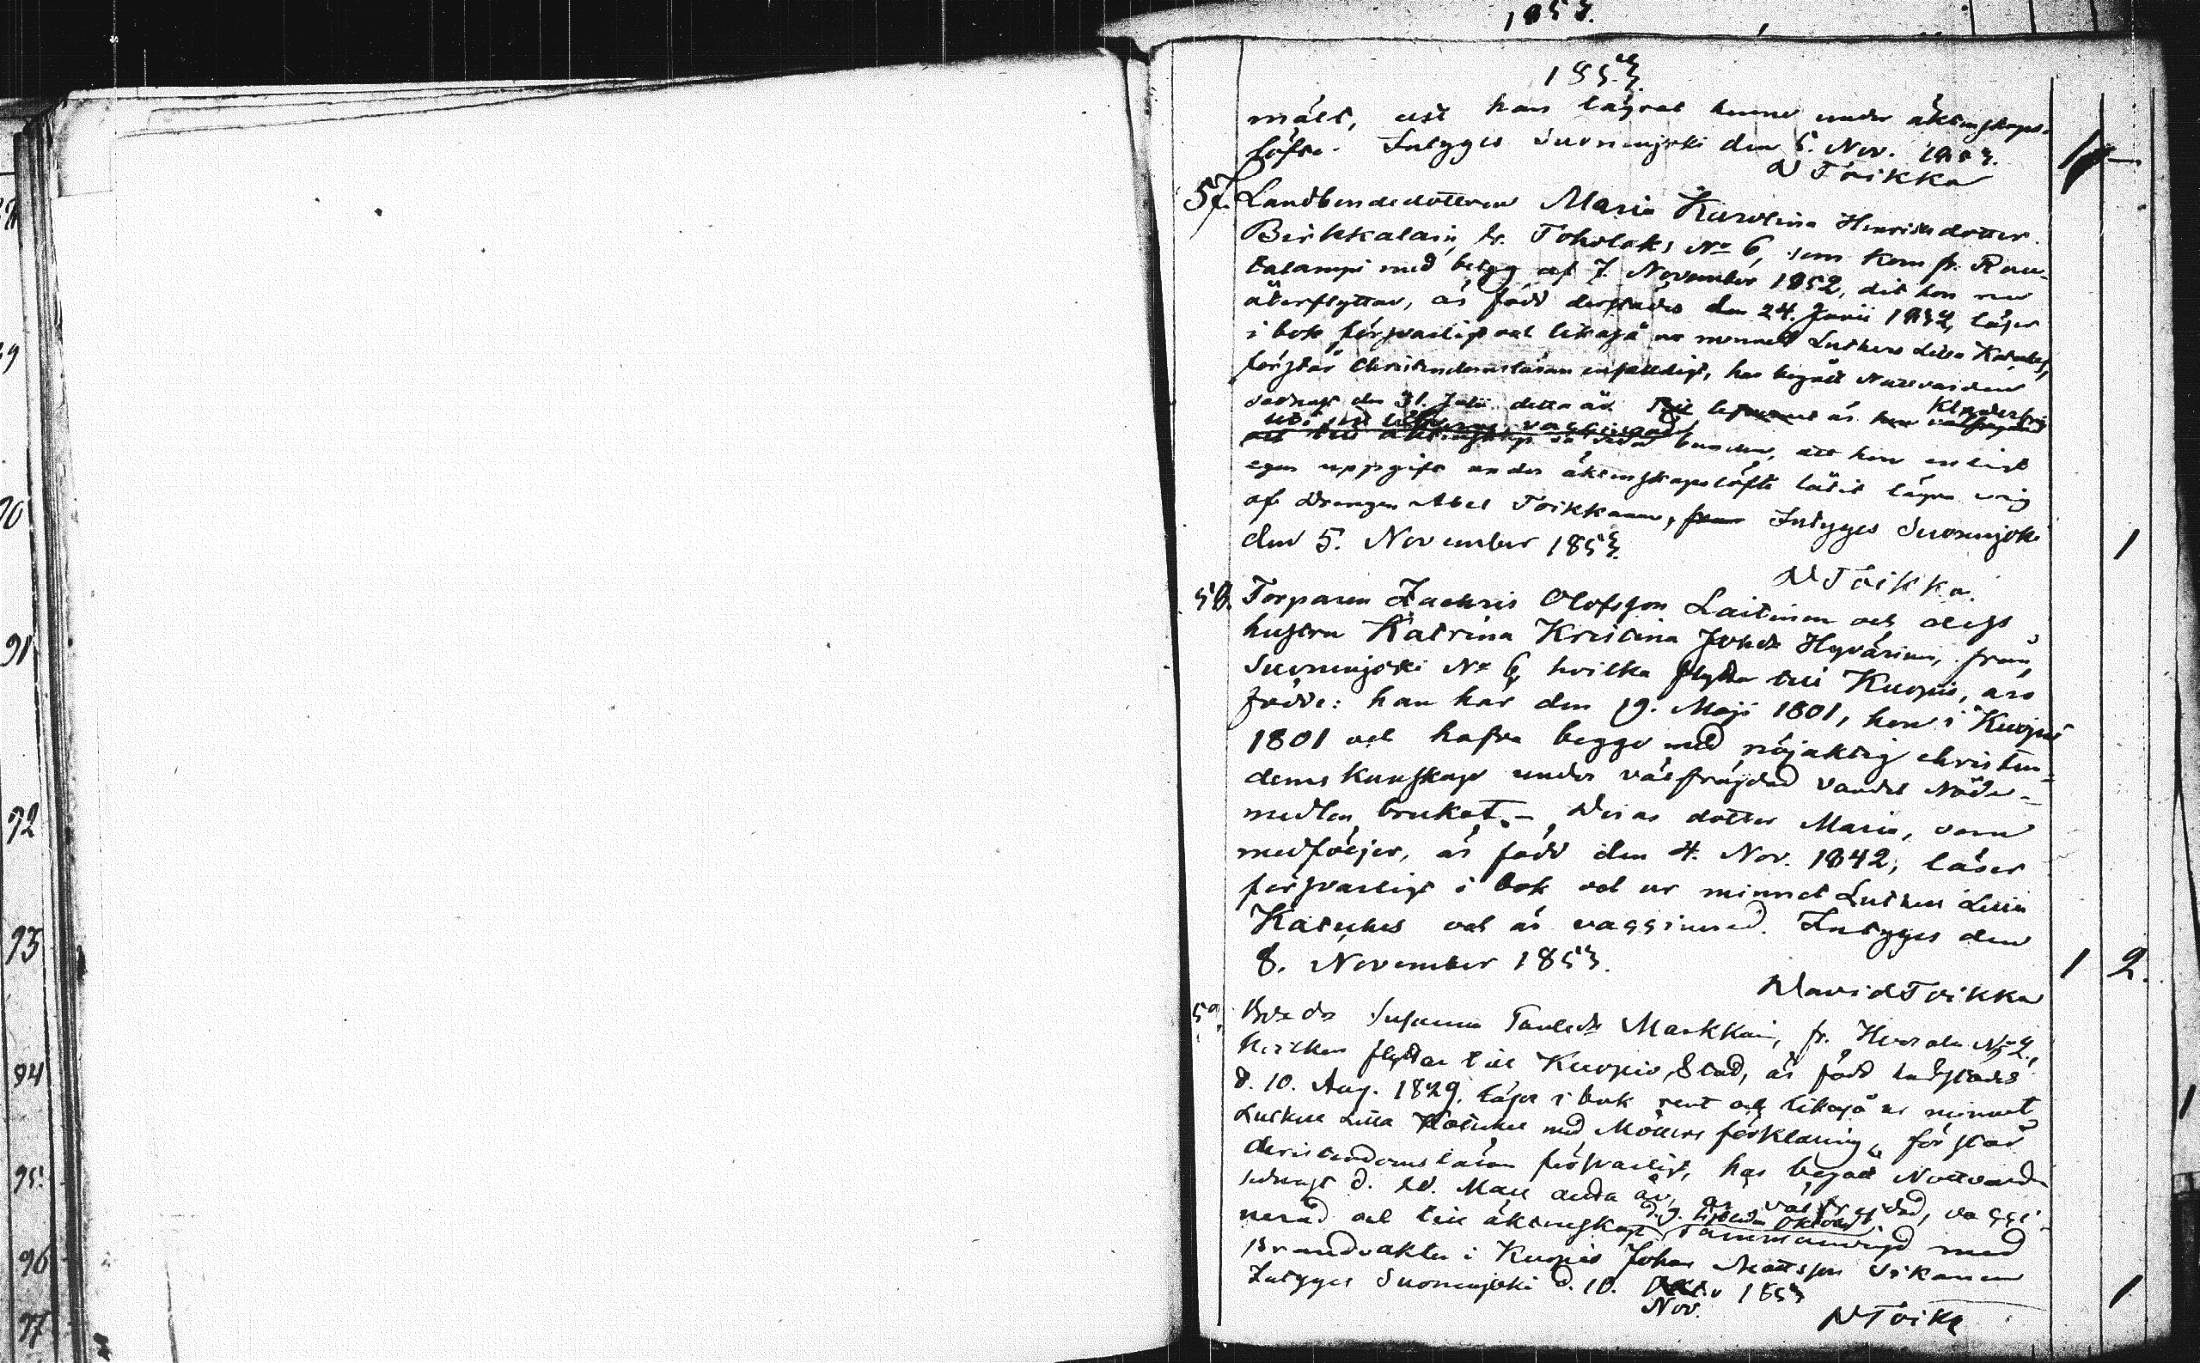 1853.
1853.
mält, att han lägrat henne under äktenskaps-
löfte. Intygas Suonenjoki den 5. Nov. 1853.
D Toikka
1 —
57. Landbondedottren Maria Karolina Henriksdotter
Birkkalain, fr. Toholaks No 6, som kom fr. Rau-
talampi med betyg af 7 November 1852, dit hon nu
återflyttar, är född derstädes den 24. Junii 1832, läser
i bok försvarligt och likaså ur minnet Luthers Lilla Kateches,
förstår Christendomsläran enfaldigt, har begått Nattvarden
sednast den 31. Julii detta år. är
Klanderfri
bunden, att hon enligt
egen uppgift under äktenskapslöfte låtit lägra sig
af Drengen Abel Toikkanen, Intygas Suonenjoki
den 5. November 1853.
1
D Toikka.
58. Torparen Zachris Olofsson Laitinen och dess
hustru Katrina Kristina Johsdr Hyvärinen, från
Suonenjoki No 6, hvilka flytta till Kuopio, äro
födde: han här den 19. Maji 1801, hon i Kuopio
1801 och hafva begge med nöjaktig christen-
doms kunskap under välfräjdad vandel Nåde-
medlen brukat. — Deras dotter Maria, som
medföljer, är född den 4. Nov. 1842, läser
försvarligt i bok och ur minnet Luthers Lilla
Kateches och är vaccinerad. Intygas den
8. November 1853.
1 2.
David Toikka
59. Susanna Paulsdr Markkain, fr. No 2,
hvilken flyttar till Kuopio Stad, är född härstädes
d. 10. Aug. 1829, läser i bok rent och likaså ur minnet
Luthers Lilla Kateches med Möllers förklaring, förstår
christendomsläran försvarligt, har begått Nattvarden
sednast d. Maji detta år, är välfräjdad, vacci-
d. 9. Oktober
nerad och till äktenskap med
Brandvakten i Kuopio Johan Mattsson
Intygas Suonenjoki d. 10. 1853
Nov.
1
D Toikka
89
90
91
92
93
94
95.
96
97
1